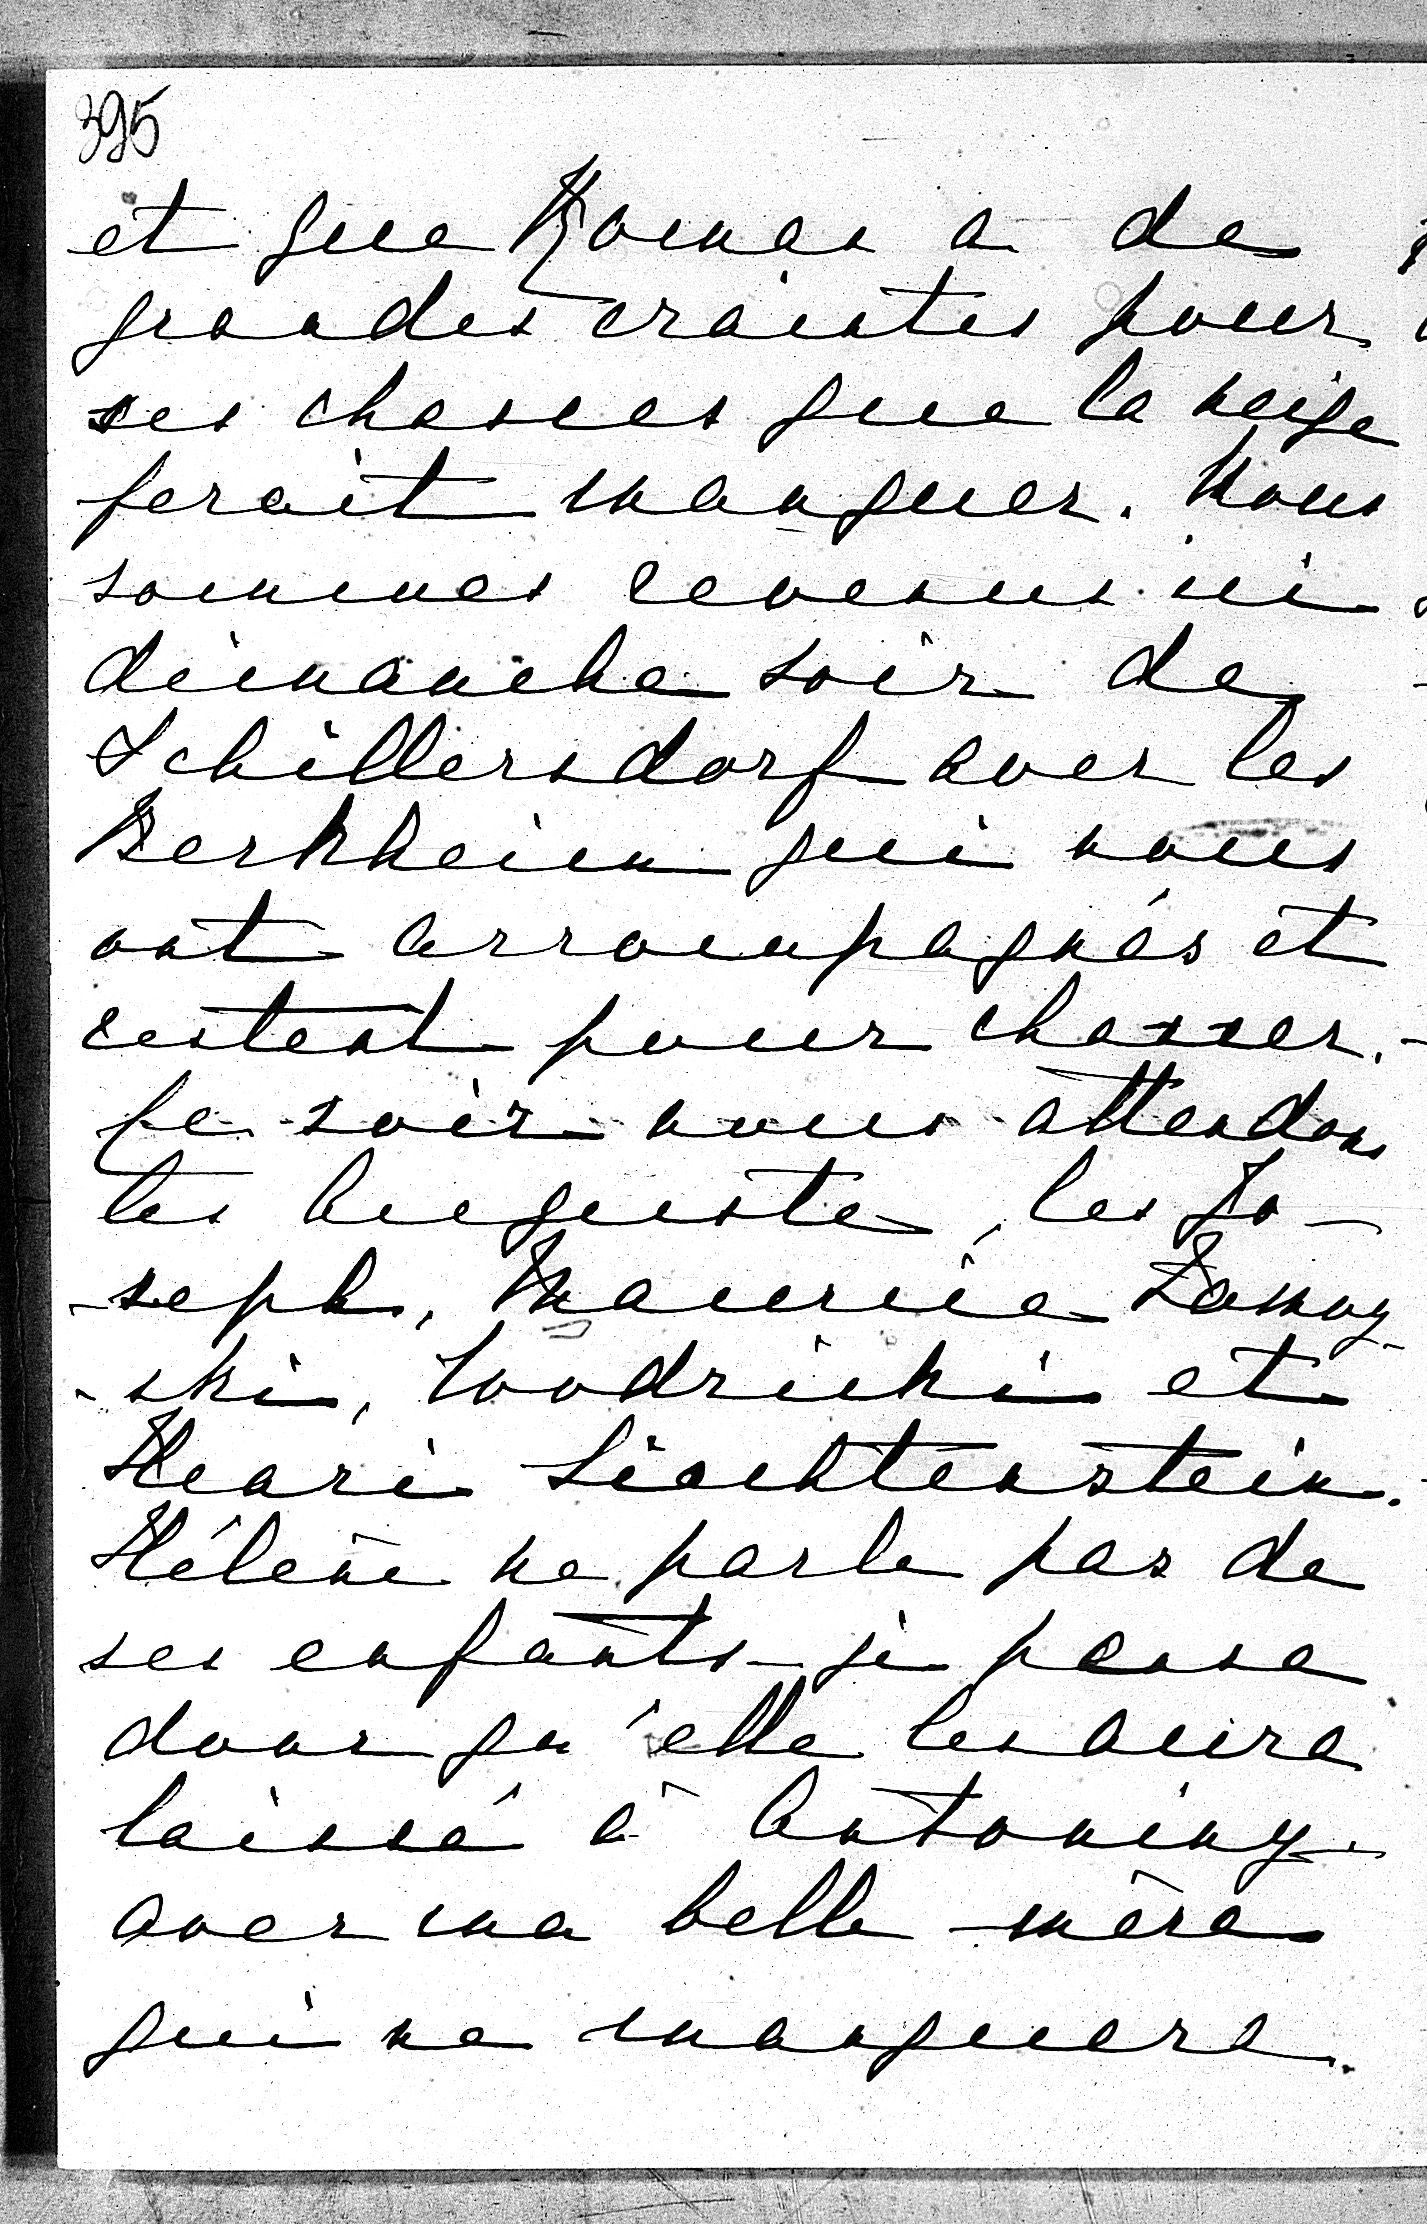 395
et que Roman a de
grandes craintes pour
ses chasses que la neige
ferait manquer. Nous
sommes revenus ici
dimanche soir de
Schillersdorf avec les
Berkheim qui nous
ont accompagnés et
restent pour chasser.
Ce soir nous attendons
les Auguste, les Jo-
-seph, Maurice Zamoy-
-ski, Wodzicki et
Henri Liechtenstein.
Hélène ne parle pas de
ses enfants je pense
donc qu'elle les aura
laissé à Antoniny
avec ma belle-mère
qui ne manquera